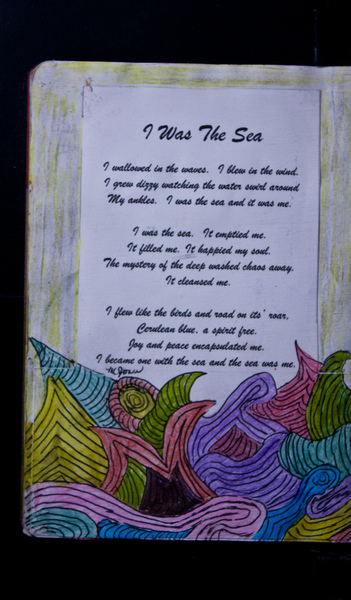 I Was The Sea
I wallowed in the waves. I blew in the wind.
I grew dizzy watching the water swirl around
My ankles. I was the sea and it was me.
I was the sea. It emptied me.
It filled me. It happied my soul.
The mystery of the deep washed chaos away.
It cleansed me.
I flew like the birds and road on its' roar,
Cerulean blue, a spirit free.
Joy and peace encapsulated me.
I became one with the sea and the sea was me.